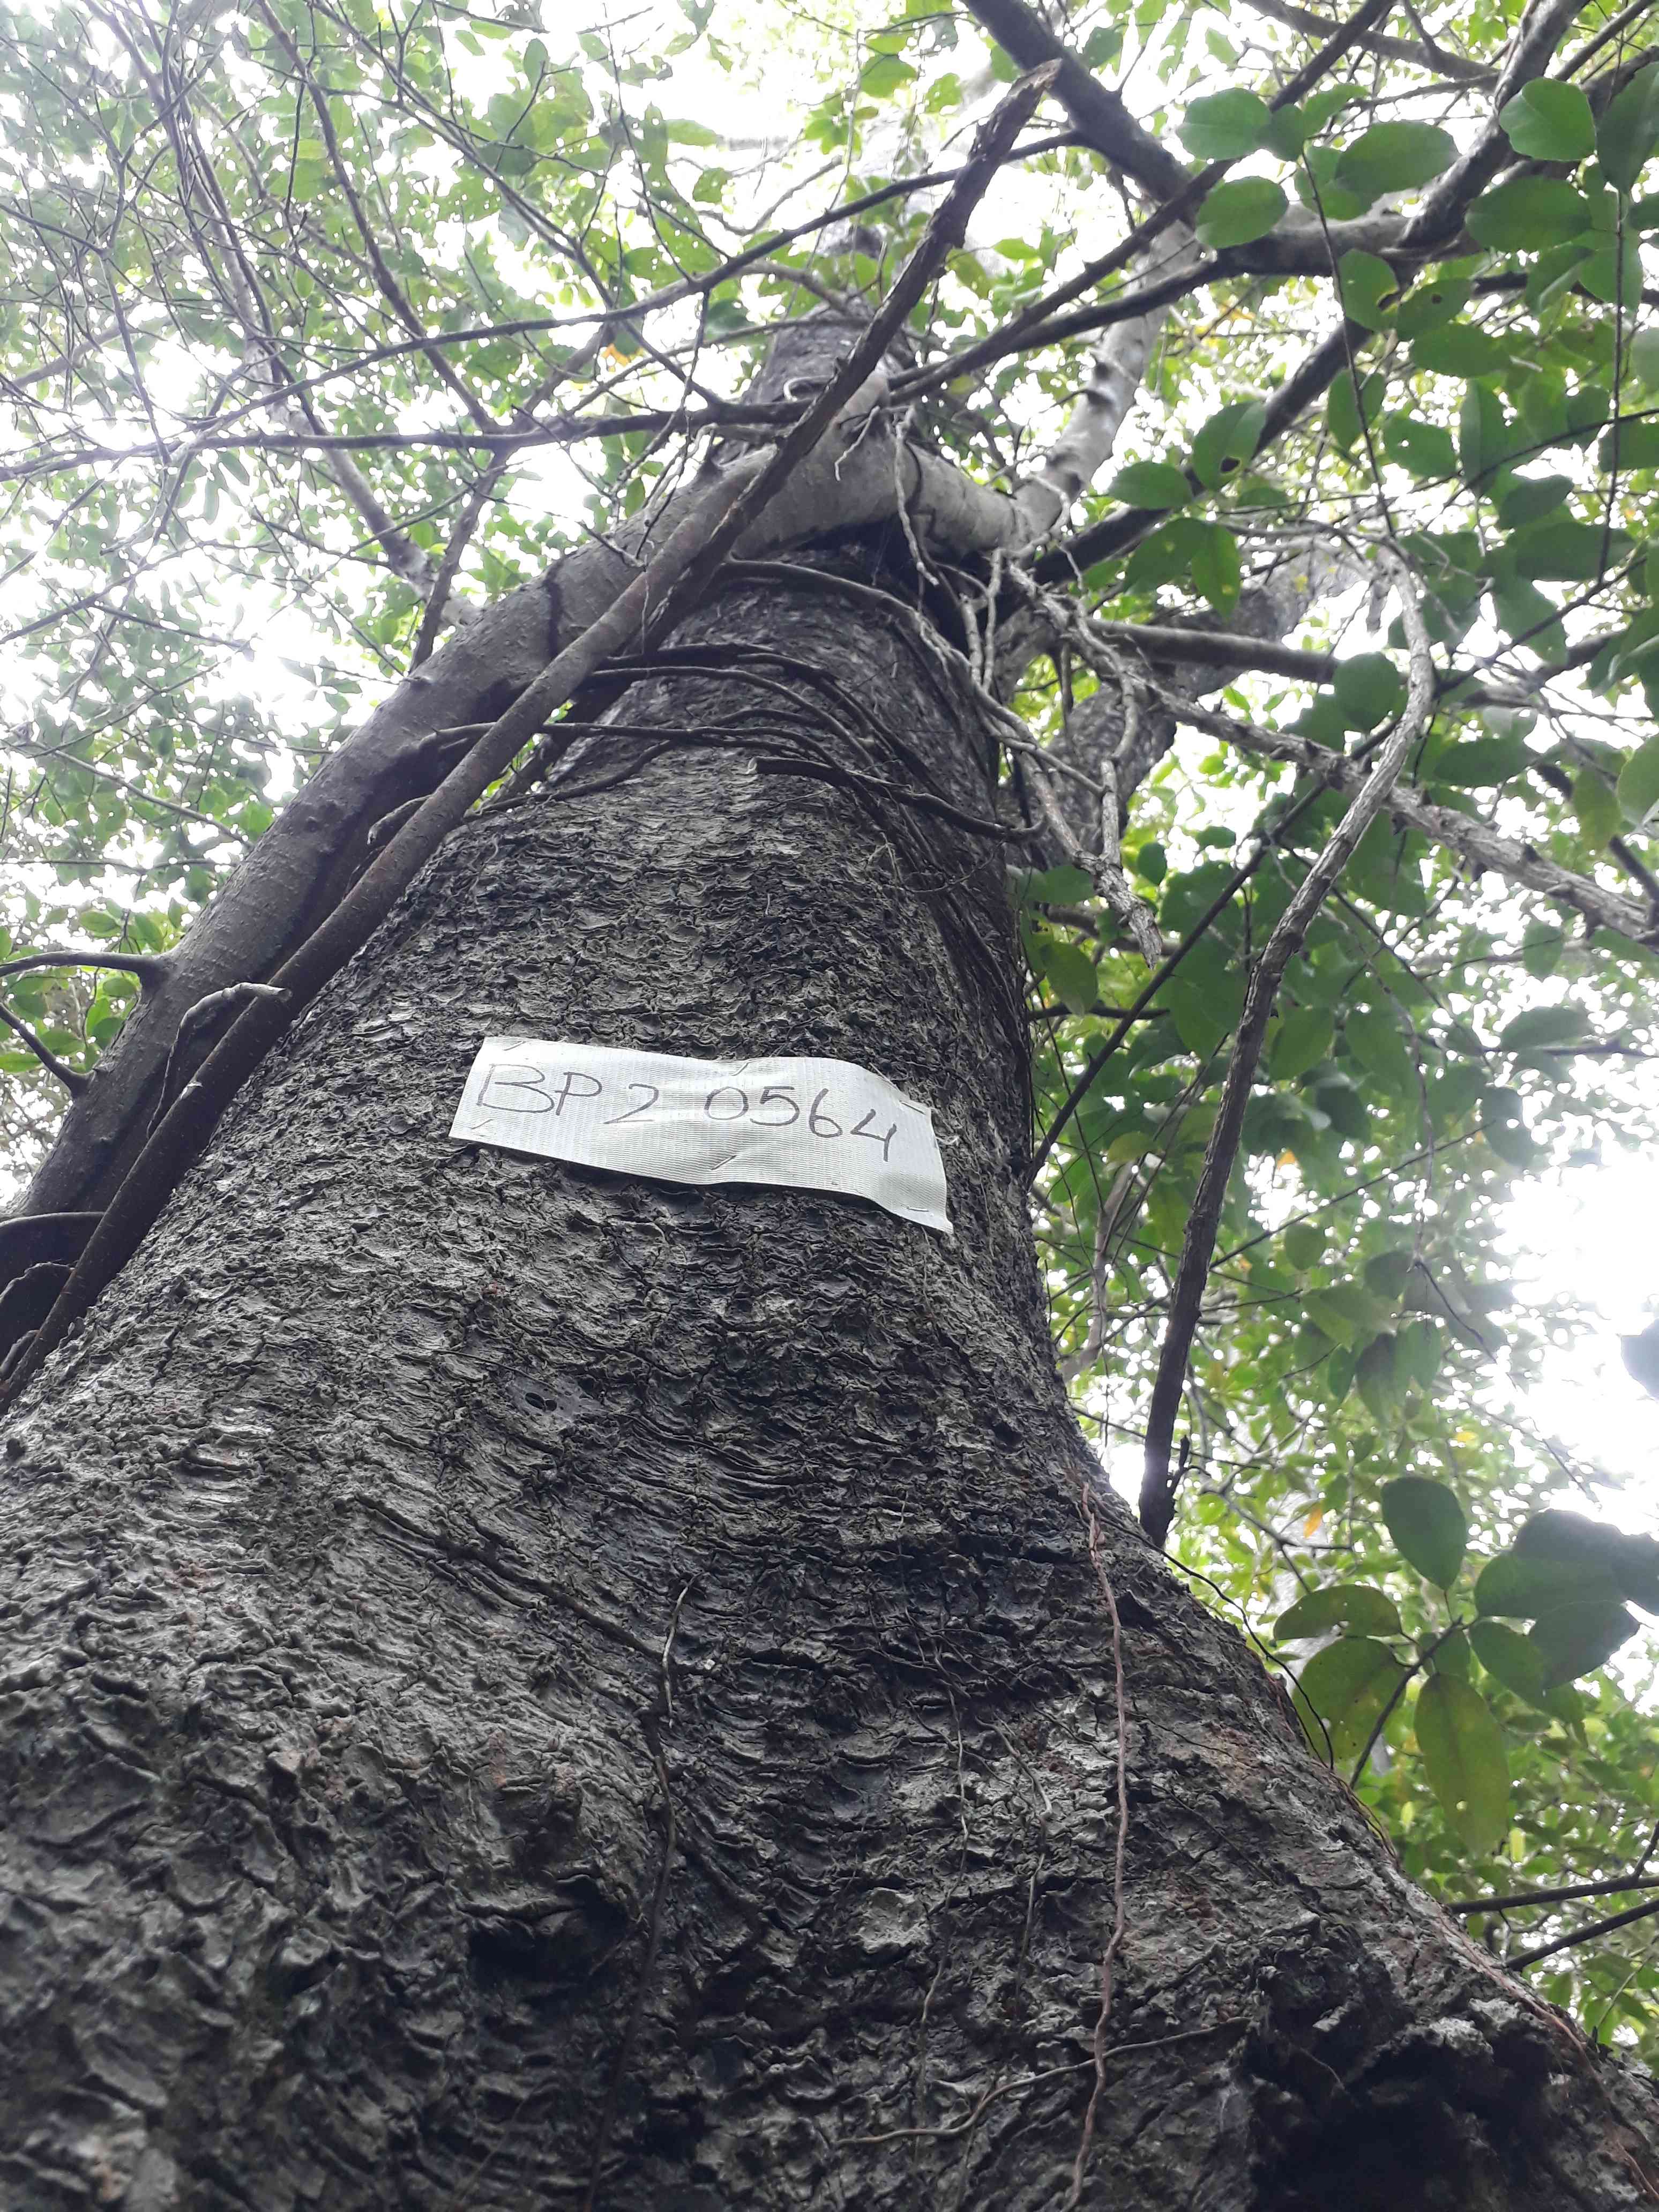 BP2 0564